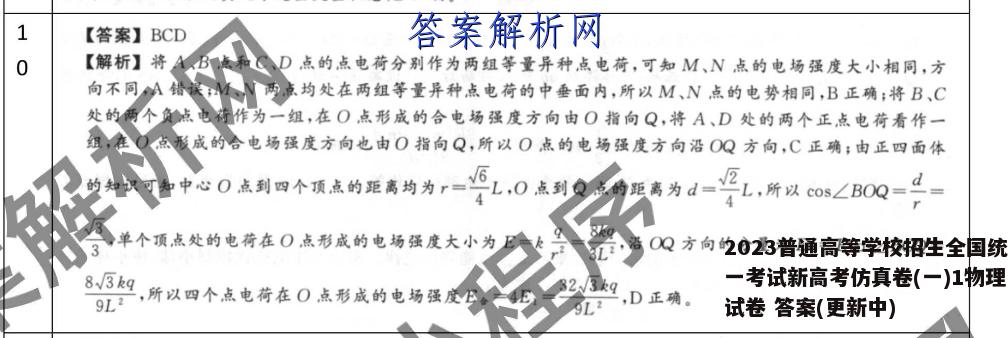 答案解析网
1
0
【答案】BCD
【解析】将A、B点和C、D点的点电荷分别作为两组等量异种点电荷,可知M、N点的电场强度大小相同,方
向不同,A错误;M、N两点均处在两组等量异种点电荷的中垂面内,所以M、N点的电势相同,B正确;将B、C
处的两个负点电荷作为一组,在O点形成的合电场强度方向由O指向Q,将A、D处的两个正点电荷看作一
组,在O点形成的合电场强度方向也由O指向Q,所以O点的电场强度方向沿OQ方向,C正确;由正四面体
的知识可知中心O点到四个顶点的距离均为r=√6/4 L,O点到Q点的距离为d=√2/4 L,所以cos∠BOQ=d/r=
√3/3,单个顶点处的电荷在O点形成的电场强度大小为E=k q/r²=8kq/3L²,沿OQ方向的
8√3kq/9L²,所以四个点电荷在O点形成的电场强度E合=4E₁=32√3kq/9L²,D正确。
2023普通高等学校招生全国统
一考试新高考仿真卷(一)1物理
试卷 答案(更新中)
解析网
程序